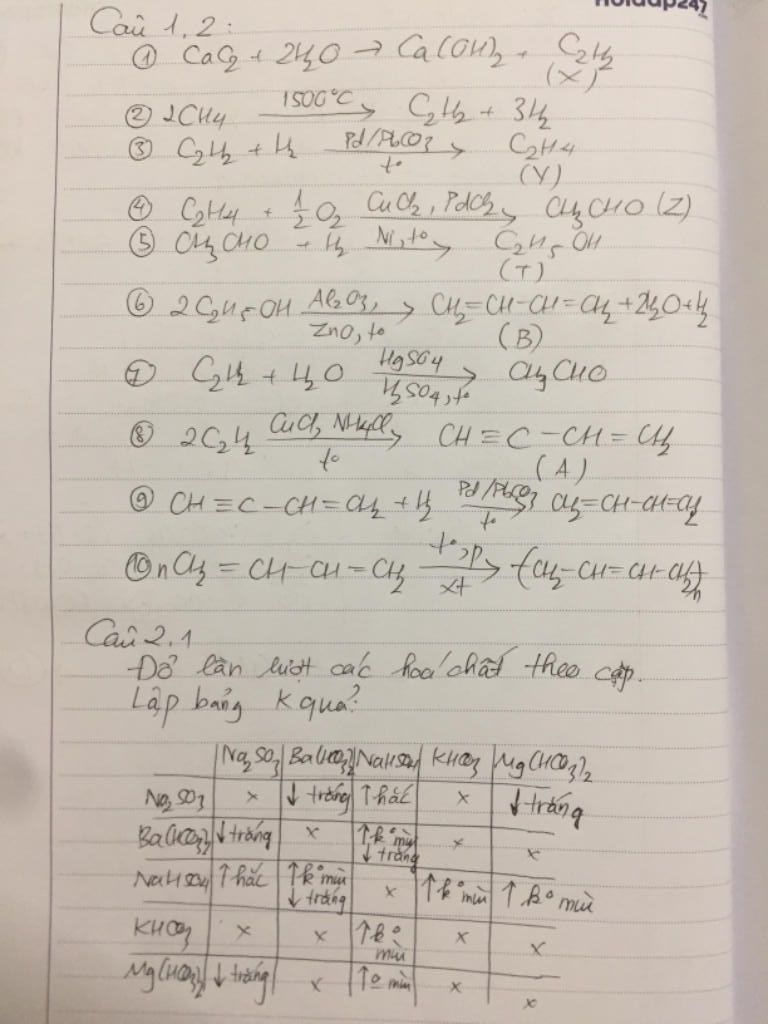 Hoidap247
Câu 1,2:
① CaC2 + 2H2O → Ca(OH)2 + C2H2
(X)
② 2CH4 1500°C → C2H2 + 3H2
③ C2H2 + H2 Pd/PbCO3 t° → C2H4
(Y)
④ C2H4 + 1/2 O2 CuCl2, PdCl2 → CH3CHO (Z)
⑤ CH3CHO + H2 Ni, t° → C2H5OH
(T)
⑥ 2C2H5OH Al2O3, ZnO, t° → CH2=CH-CH=CH2 + 2H2O + H2
(B)
⑦ C2H2 + H2O HgSO4 H2SO4, t° → CH3CHO
⑧ 2C2H2 CuCl, NH4Cl t° → CH≡C-CH=CH2
(A)
⑨ CH≡C-CH=CH2 + H2 Pd/PbCO3 t° → CH2=CH-CH=CH2
⑩ nCH2=CH-CH=CH2 t°, p xt → (CH2-CH=CH-CH2)n
Câu 2.1
Đổ lần lượt các hoá chất theo cặp.
Lập bảng K quả:
Na2SO3 Ba(HCO3)2 NaHSO4 KHCO3 Mg(HCO3)2
Na2SO3 x ↓trắng ↑hắc x ↓trắng
Ba(HCO3)2 ↓trắng x ↑k° mùi ↓trắng x x
NaHSO4 ↑hắc ↑k° mùi ↓trắng x ↑k° mùi ↑k° mùi
KHCO3 x x ↑k° mùi x x
Mg(HCO3)2 ↓trắng x ↑° mùi x x